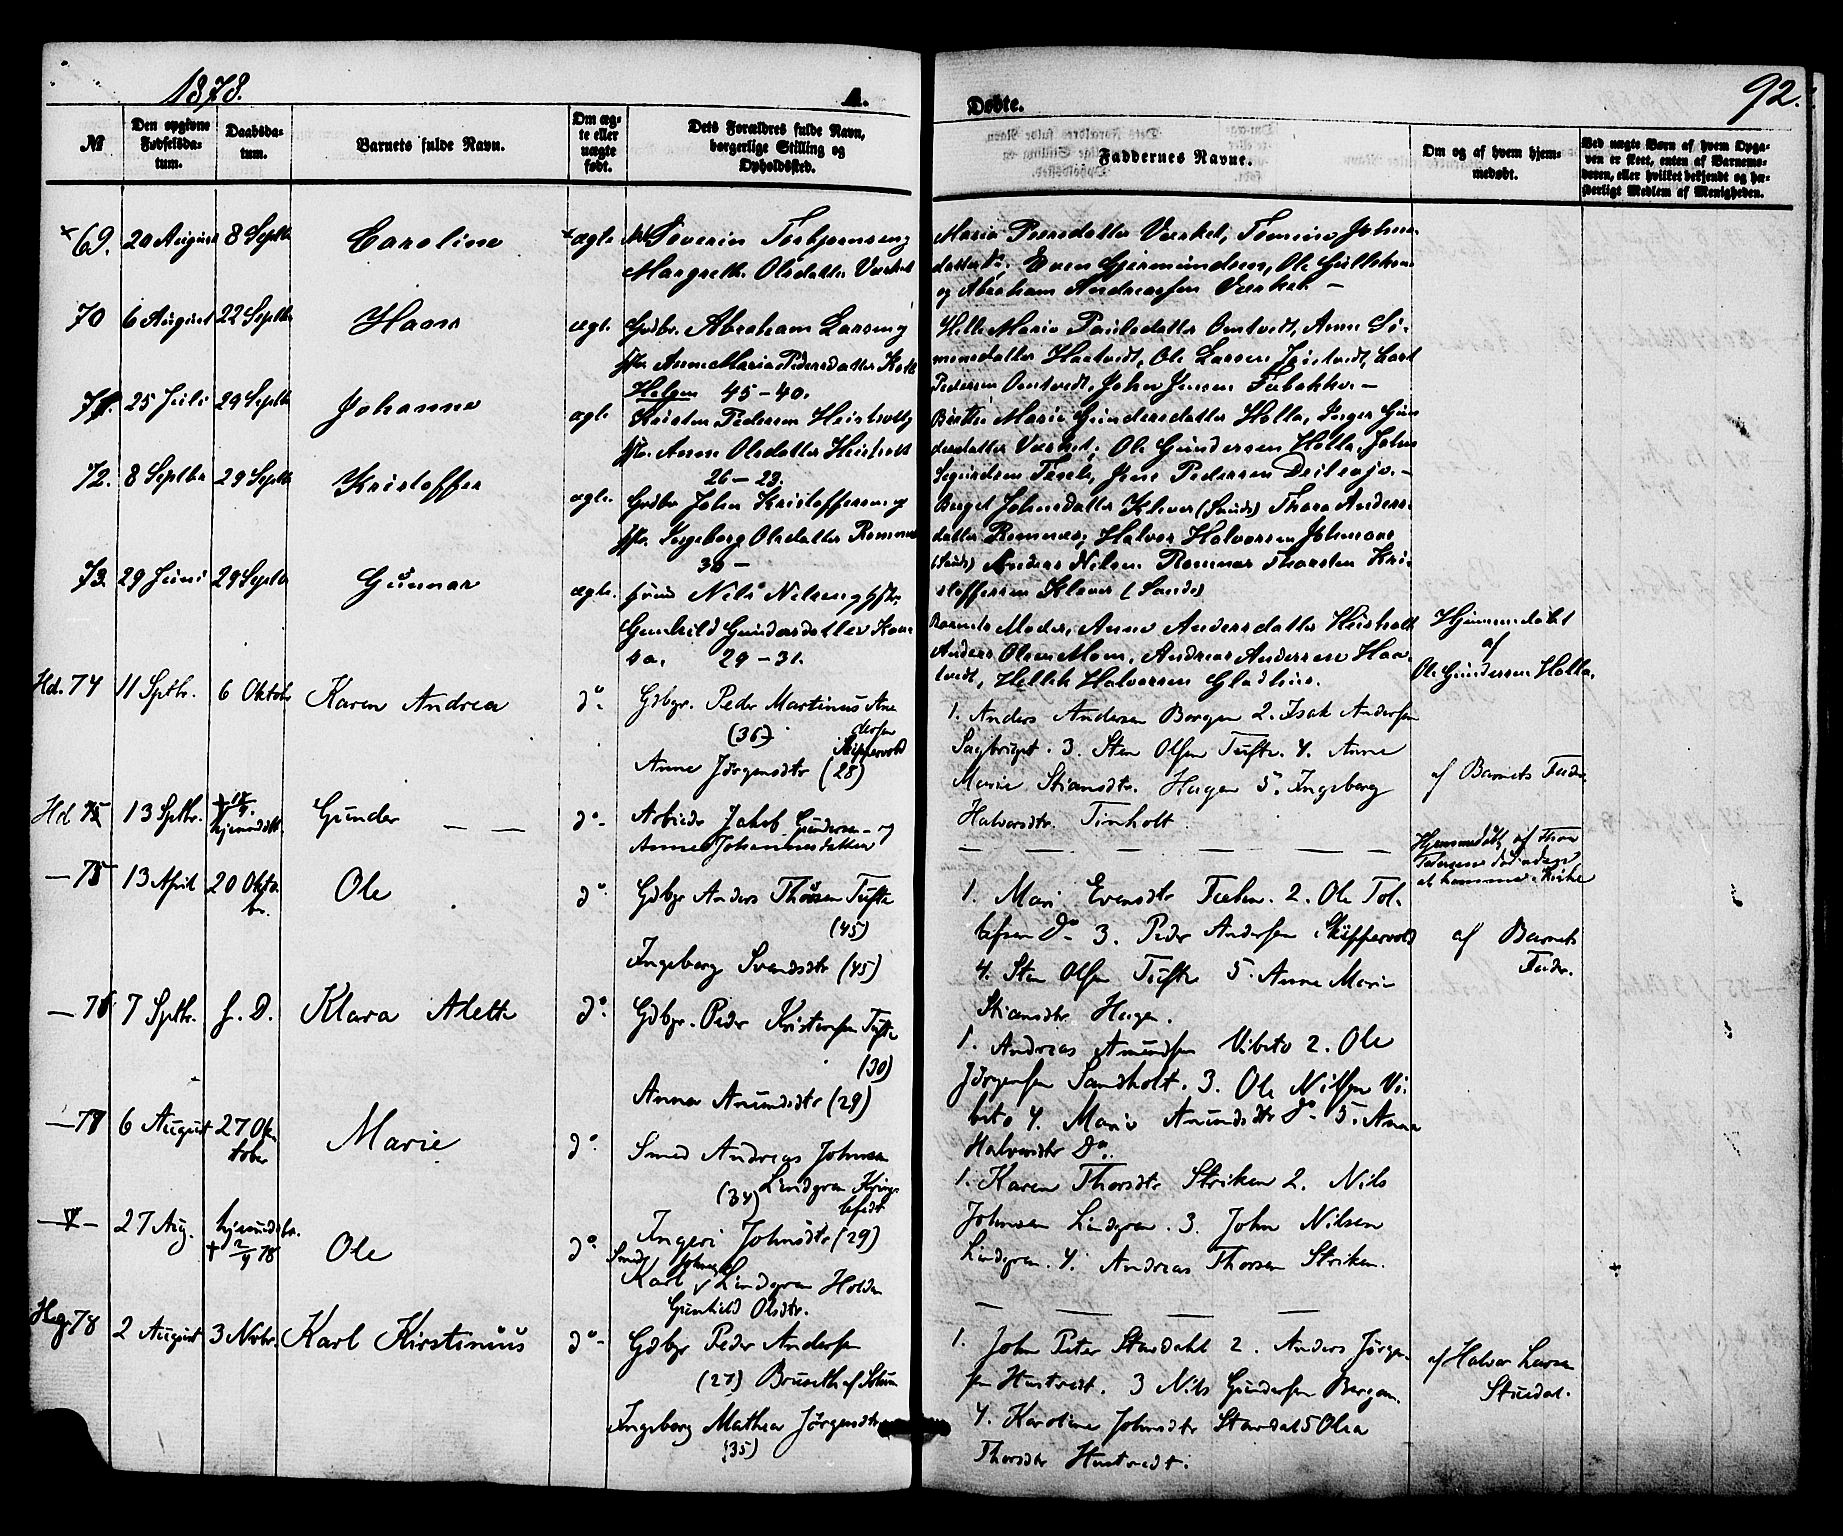 1878.
A.
Døbte.
92.
№
Den opgivne Fødselsdatum.
Daabsdatum.
Barnets fulde Navn.
Om ægte eller uægte født.
Dets Forældres fulde Navn, borgerlige Stilling og Opholdssted.
Faddernes Navne.
Om og af hvem hjemmedøbt.
Ved uægte Børn af hvem Opgaven er skeet, enten af Barnemoderen, eller hvilket bekjendt og hæderligt Medlem af Menigheden.
69. 20 August 8 Septbr Caroline ægte Severin Torbjørnsen og
Margrethe Olsdatter Værket
Maria Peersdatter Værket, Tomine Johnsdatter Do, Even Gjermundsen, Ole Gulliksen
og Abraham Andreassen Værket. —
70 6 August 22 Septbr Hans ægte. Grdbr. Abraham Larsen og
Anne Maria Pedersdatter
Holgen 45 – 40.
Helle Maria Paulsdatter Omtvedt, Anne Simensdatter Haatvedt, Ole Larsen, Lars
Pedersen Omtvedt, John Jensen
71. 25 Juli 29 Septbr Johanne ægte Kristen Pedersen Heisholt og
Anne Olsdatter Heisholt
26 – 23.
Birthe Marie Gundersdatter Holla, Inger Gundersdatter Værket, Ole Gundersen Holla, John
Jens Pedersen
72. 8 Septbr 29 Septbr Kristoffer ægte. Grdbr John Kristoffersen og
Ingeborg Olsdatter Romnes
30 –
Berget Johnsdatter Kleven (Sande) Thora Andersdatter Romnes, Halvor Halvorsen Johnsaas
(Sande) Anders Nilsen Romnes Thorsten Kristoffersen Kleven (Sande)
73. 29 Juni 29 Septbr Gunnar ægte. Nils Nilsen og
Gunhild Gundersdatter Kaasa. 29 – 31.
Barnets Moder, Anne Andersdatter Heisholt
Anders Olsen Moen, Andreas Andersen Haatvedt, Hellik Halvorsen Gladhus.
Hjemmedøbt
af
Ole Gundersen Holla.
Hd. 74 11 Septbr. 6 Oktob Karen Andrea do. Gdbgr. Peder Martinus Andersen
(36) Skippervold
Anne Jørgensdtr (28)
1. Anders Andersen Borgen 2. Isak Andersen
3. Sten Olsen Tufte. 4. Anne
Marie Stiansdtr. Hagen 5. Ingeborg
Halvorsdtr. Tinholt.
af Barnets Fader
Hd 75 13 Septbr. hjemmedøbt. Gunder — — do- Arbeider Jakob Gundersen og
Anne Johannesdatter
— — — — — — —
Hjemmedøbt af Thor
— 75 13 April 20 Oktobr. Ole do. Gdbgr Anders Thorsen Tufte
(45)
Ingeborg Svendsdtr (45)
1. Mari Evensdtr 2. Ole Tollefsen Do 3. Peder Andersen Skippervold
4. Sten Olsen Tufte 5. Anne Marie
Stiansdtr Hagen.
af Barnets
Fader.
— 76 7 Septbr. s. D. Klara Alette do. Gdbgr. Peder Kristensen Tufte
(30)
Anna Amundsdtr (29)
1. Andreas Amundsen Vibeto 2. Ole
Jørgensen Sandholt. 3. Ole Nilsen Vibeto 4. Maria Amundsdtr Do. 5. Anna
Halvorsdtr Do.
— 77 6 August 27 Oktober Marie do. Smed Andreas Johnsen
(34) Lindgren
Ingeri Johnsdtr (29)
1. Karen Thorsdtr Striken 2. Nils
Johnsen Lindgren. 3. John Nilsen
Lindgren. 4. Andreas Thorsen Striken.
27 Aug. hjemmedøbt. † 2/9 78 Ole do. Smed Karl Johnsen Lindgren Holden
Gunhild Olsdtr.
— — — —
78 2 August 3 Novbr. Karl Kirstinius do- Gdbgr Peder Andersen
(27) Bruseth
Ingeborg Mathea Jørgensdtr
(35)
1. John Peter Stardahl 2. Anders Jørgensen Hustvedt. 3 Nils Gundersen Bergan.
4. Karoline Johnsdtr Stardal 5 Olea
Thorsdtr Hustvedt.
af Halvor Larsen